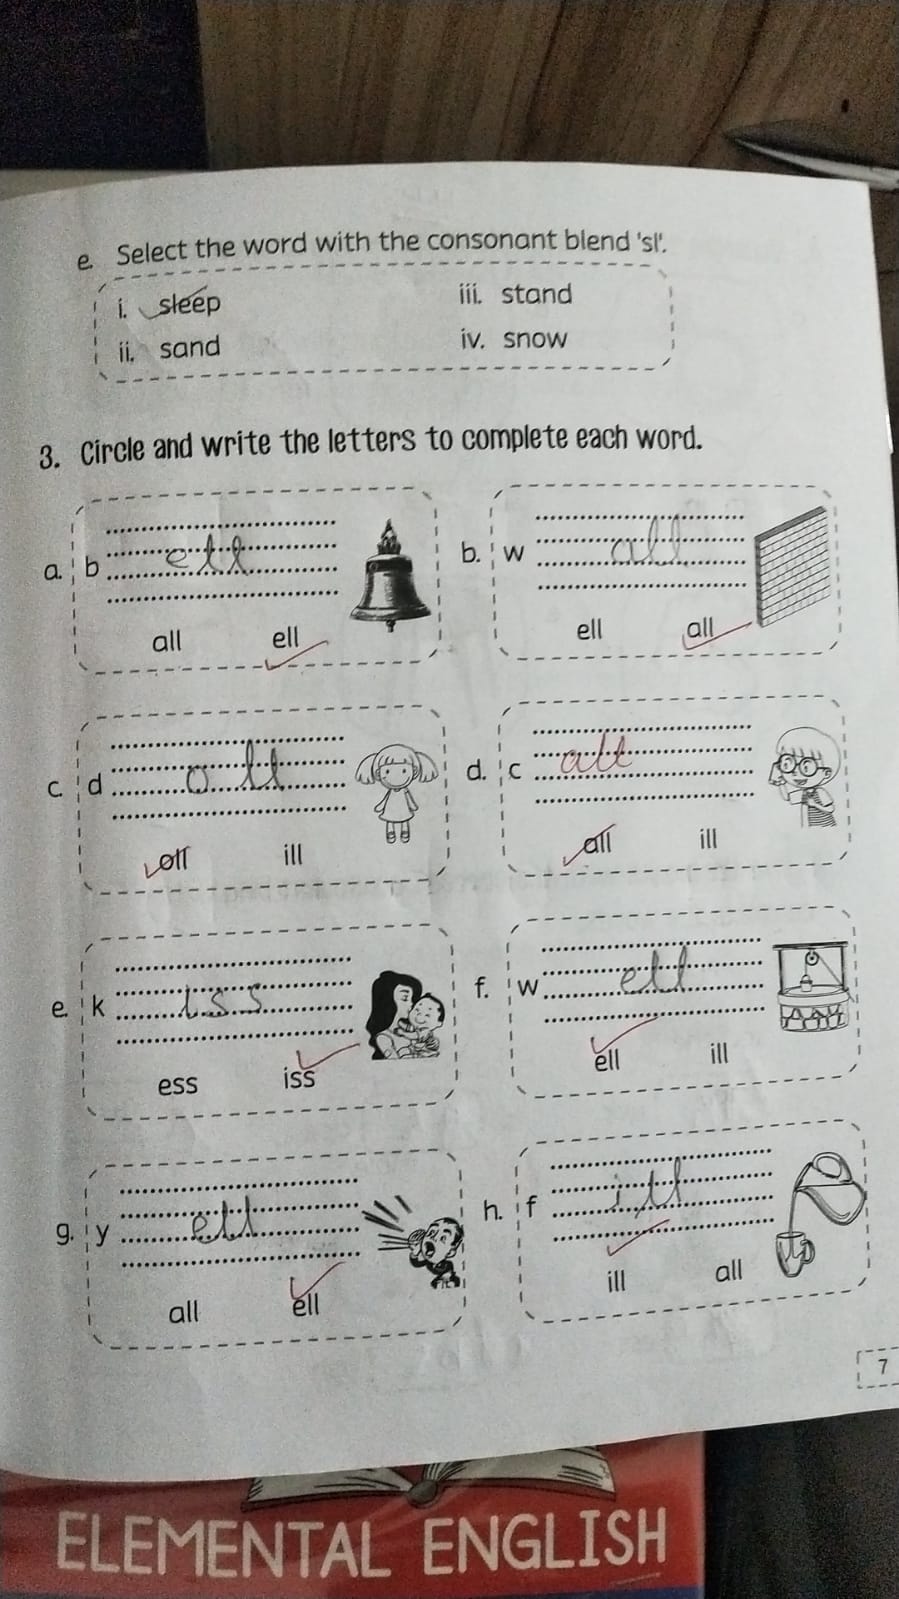 e. Select the word with the consonant blend 'sl'.
i. sleep iii. stand
ii. sand iv. snow
3. Circle and write the letters to complete each word.
a. b ell b. w all
all ell ell all
c. d oll d. c all
oll ill all ill
e. k iss f. w ell
ess iss ell ill
g. y ell h. f ill
all ell ill all
7
ELEMENTAL ENGLISH